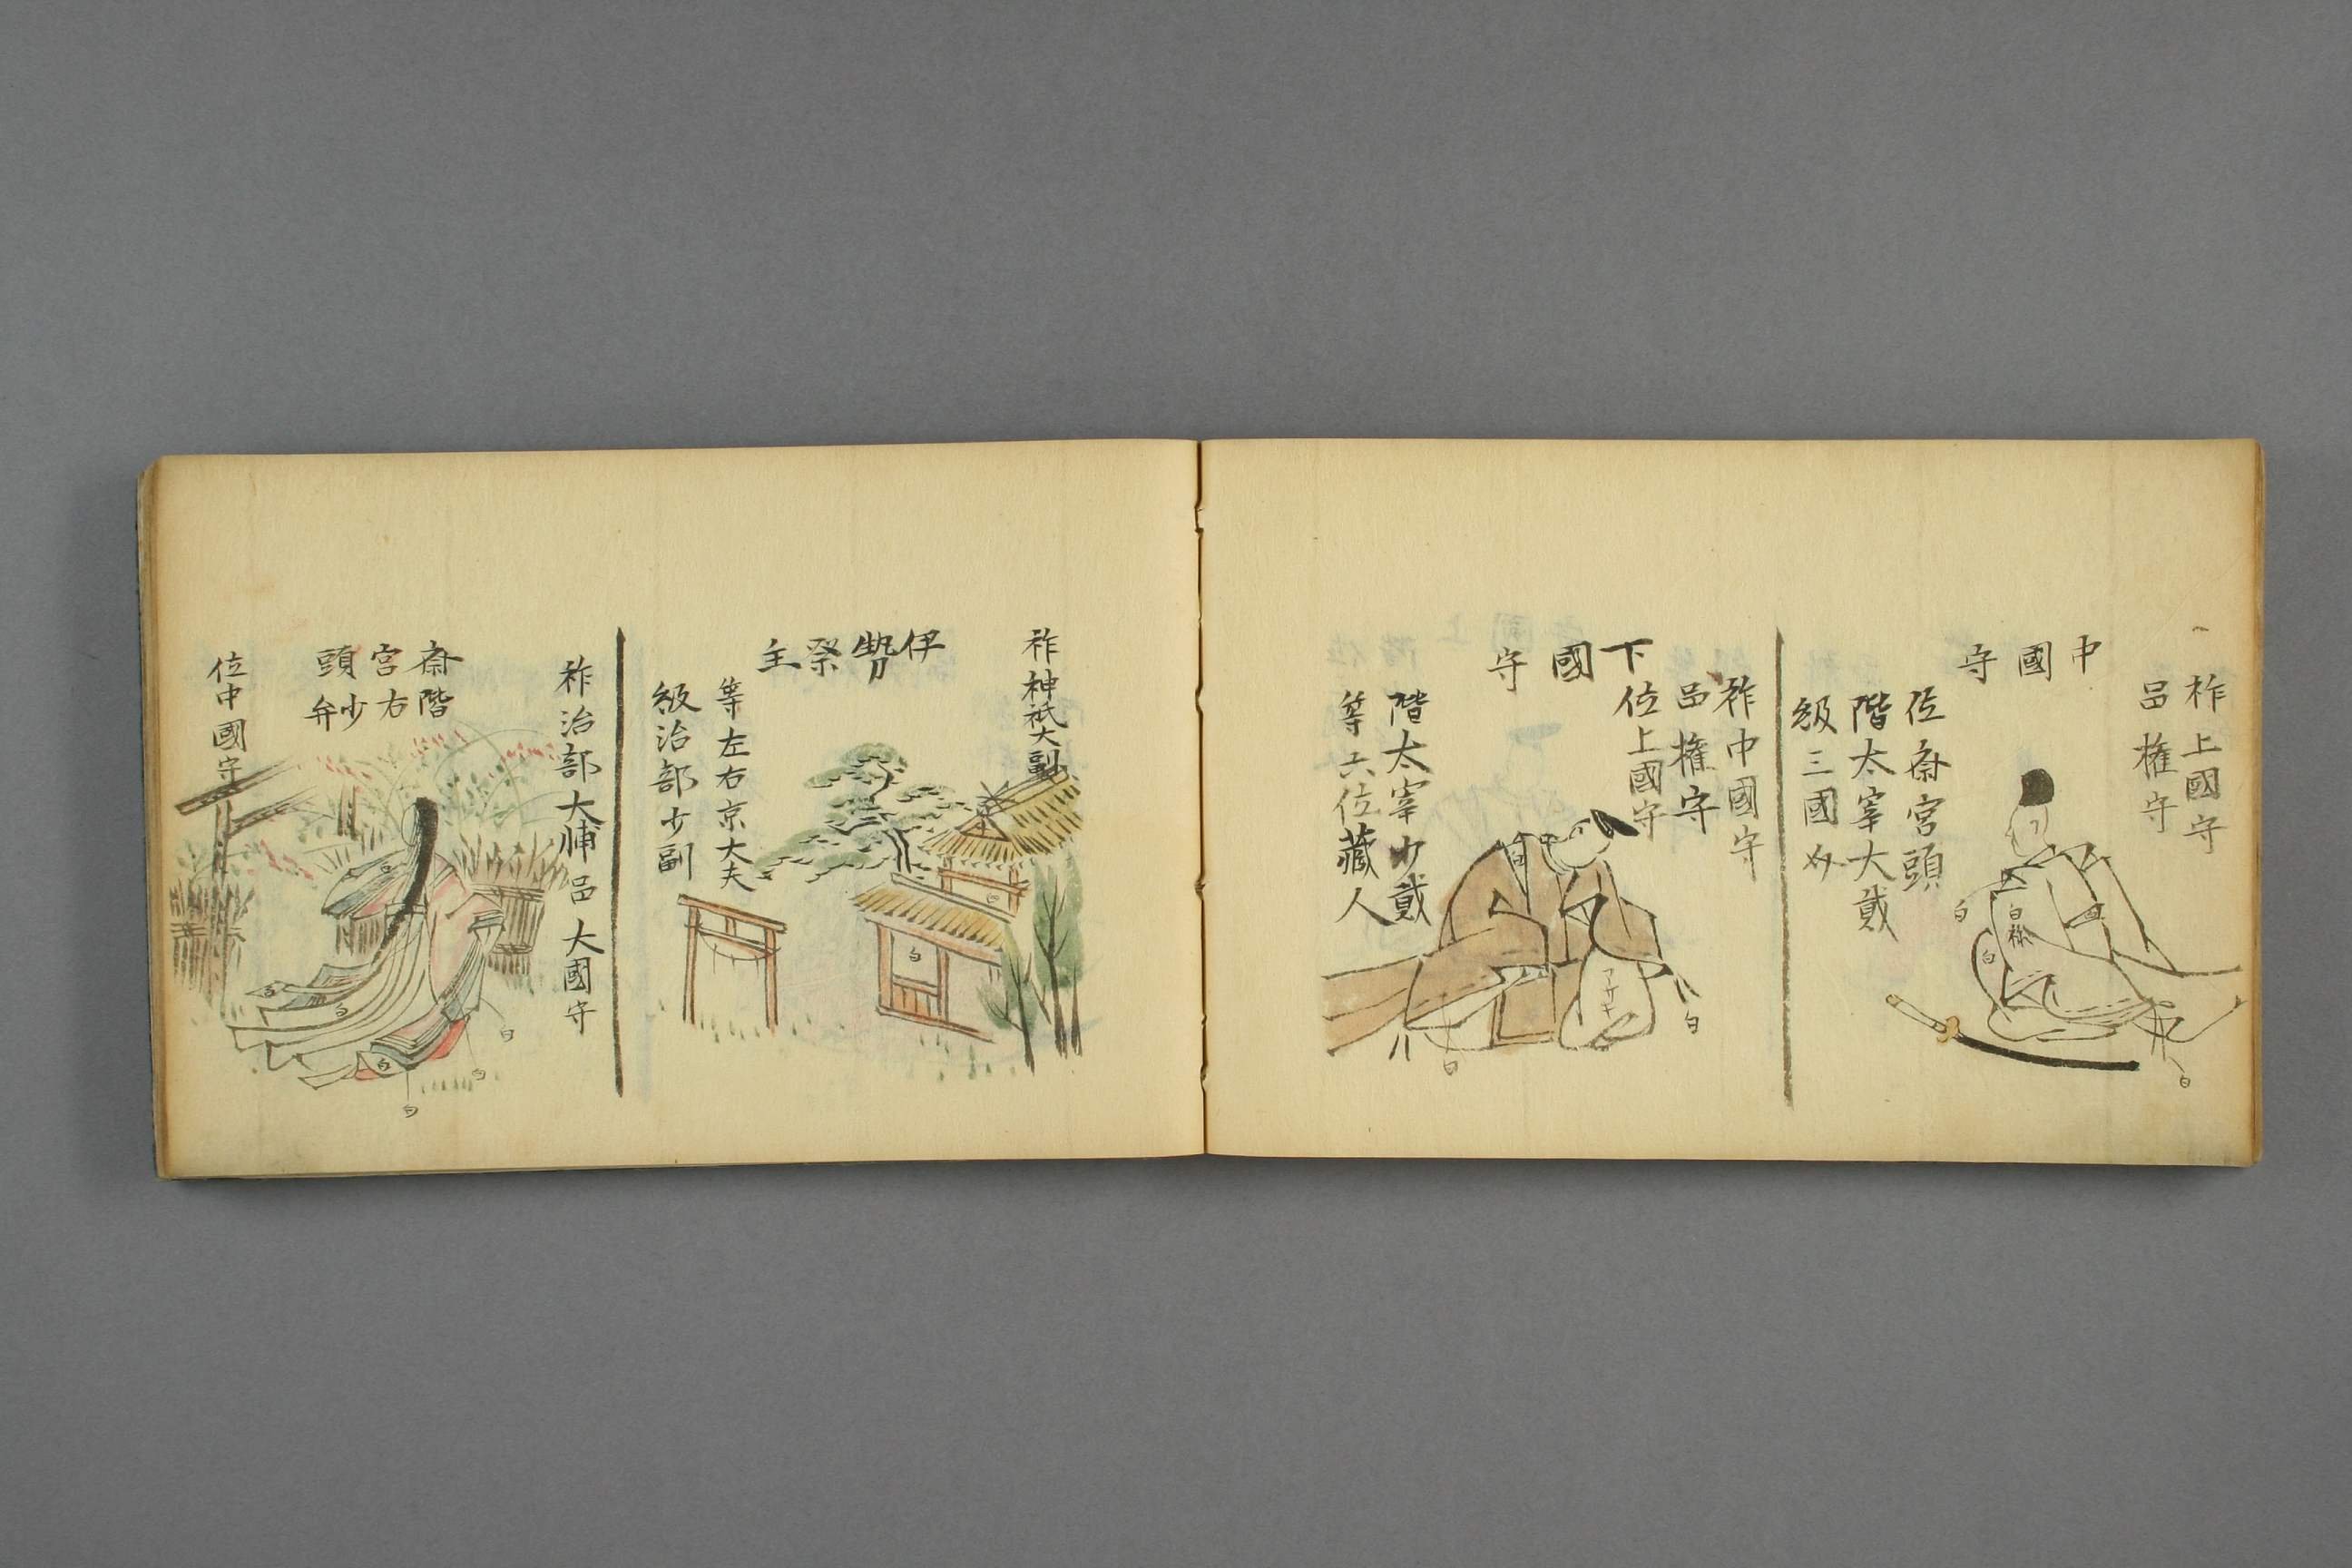 祚上國守
邑權守
中國守
位斎宮頭
階太宰大貳
級三國
白
白
白
白
祚中國守
邑權守
位上國守
下國守
階太宰少貳
等六位藏人
アサギ
白
白
祚神祇大副
伊勢祭主
等左右京大夫
級治部少副
白
祚治部大輔邑大國守
斎宮頭
階右少弁
位中國守
白
白
白
白
白